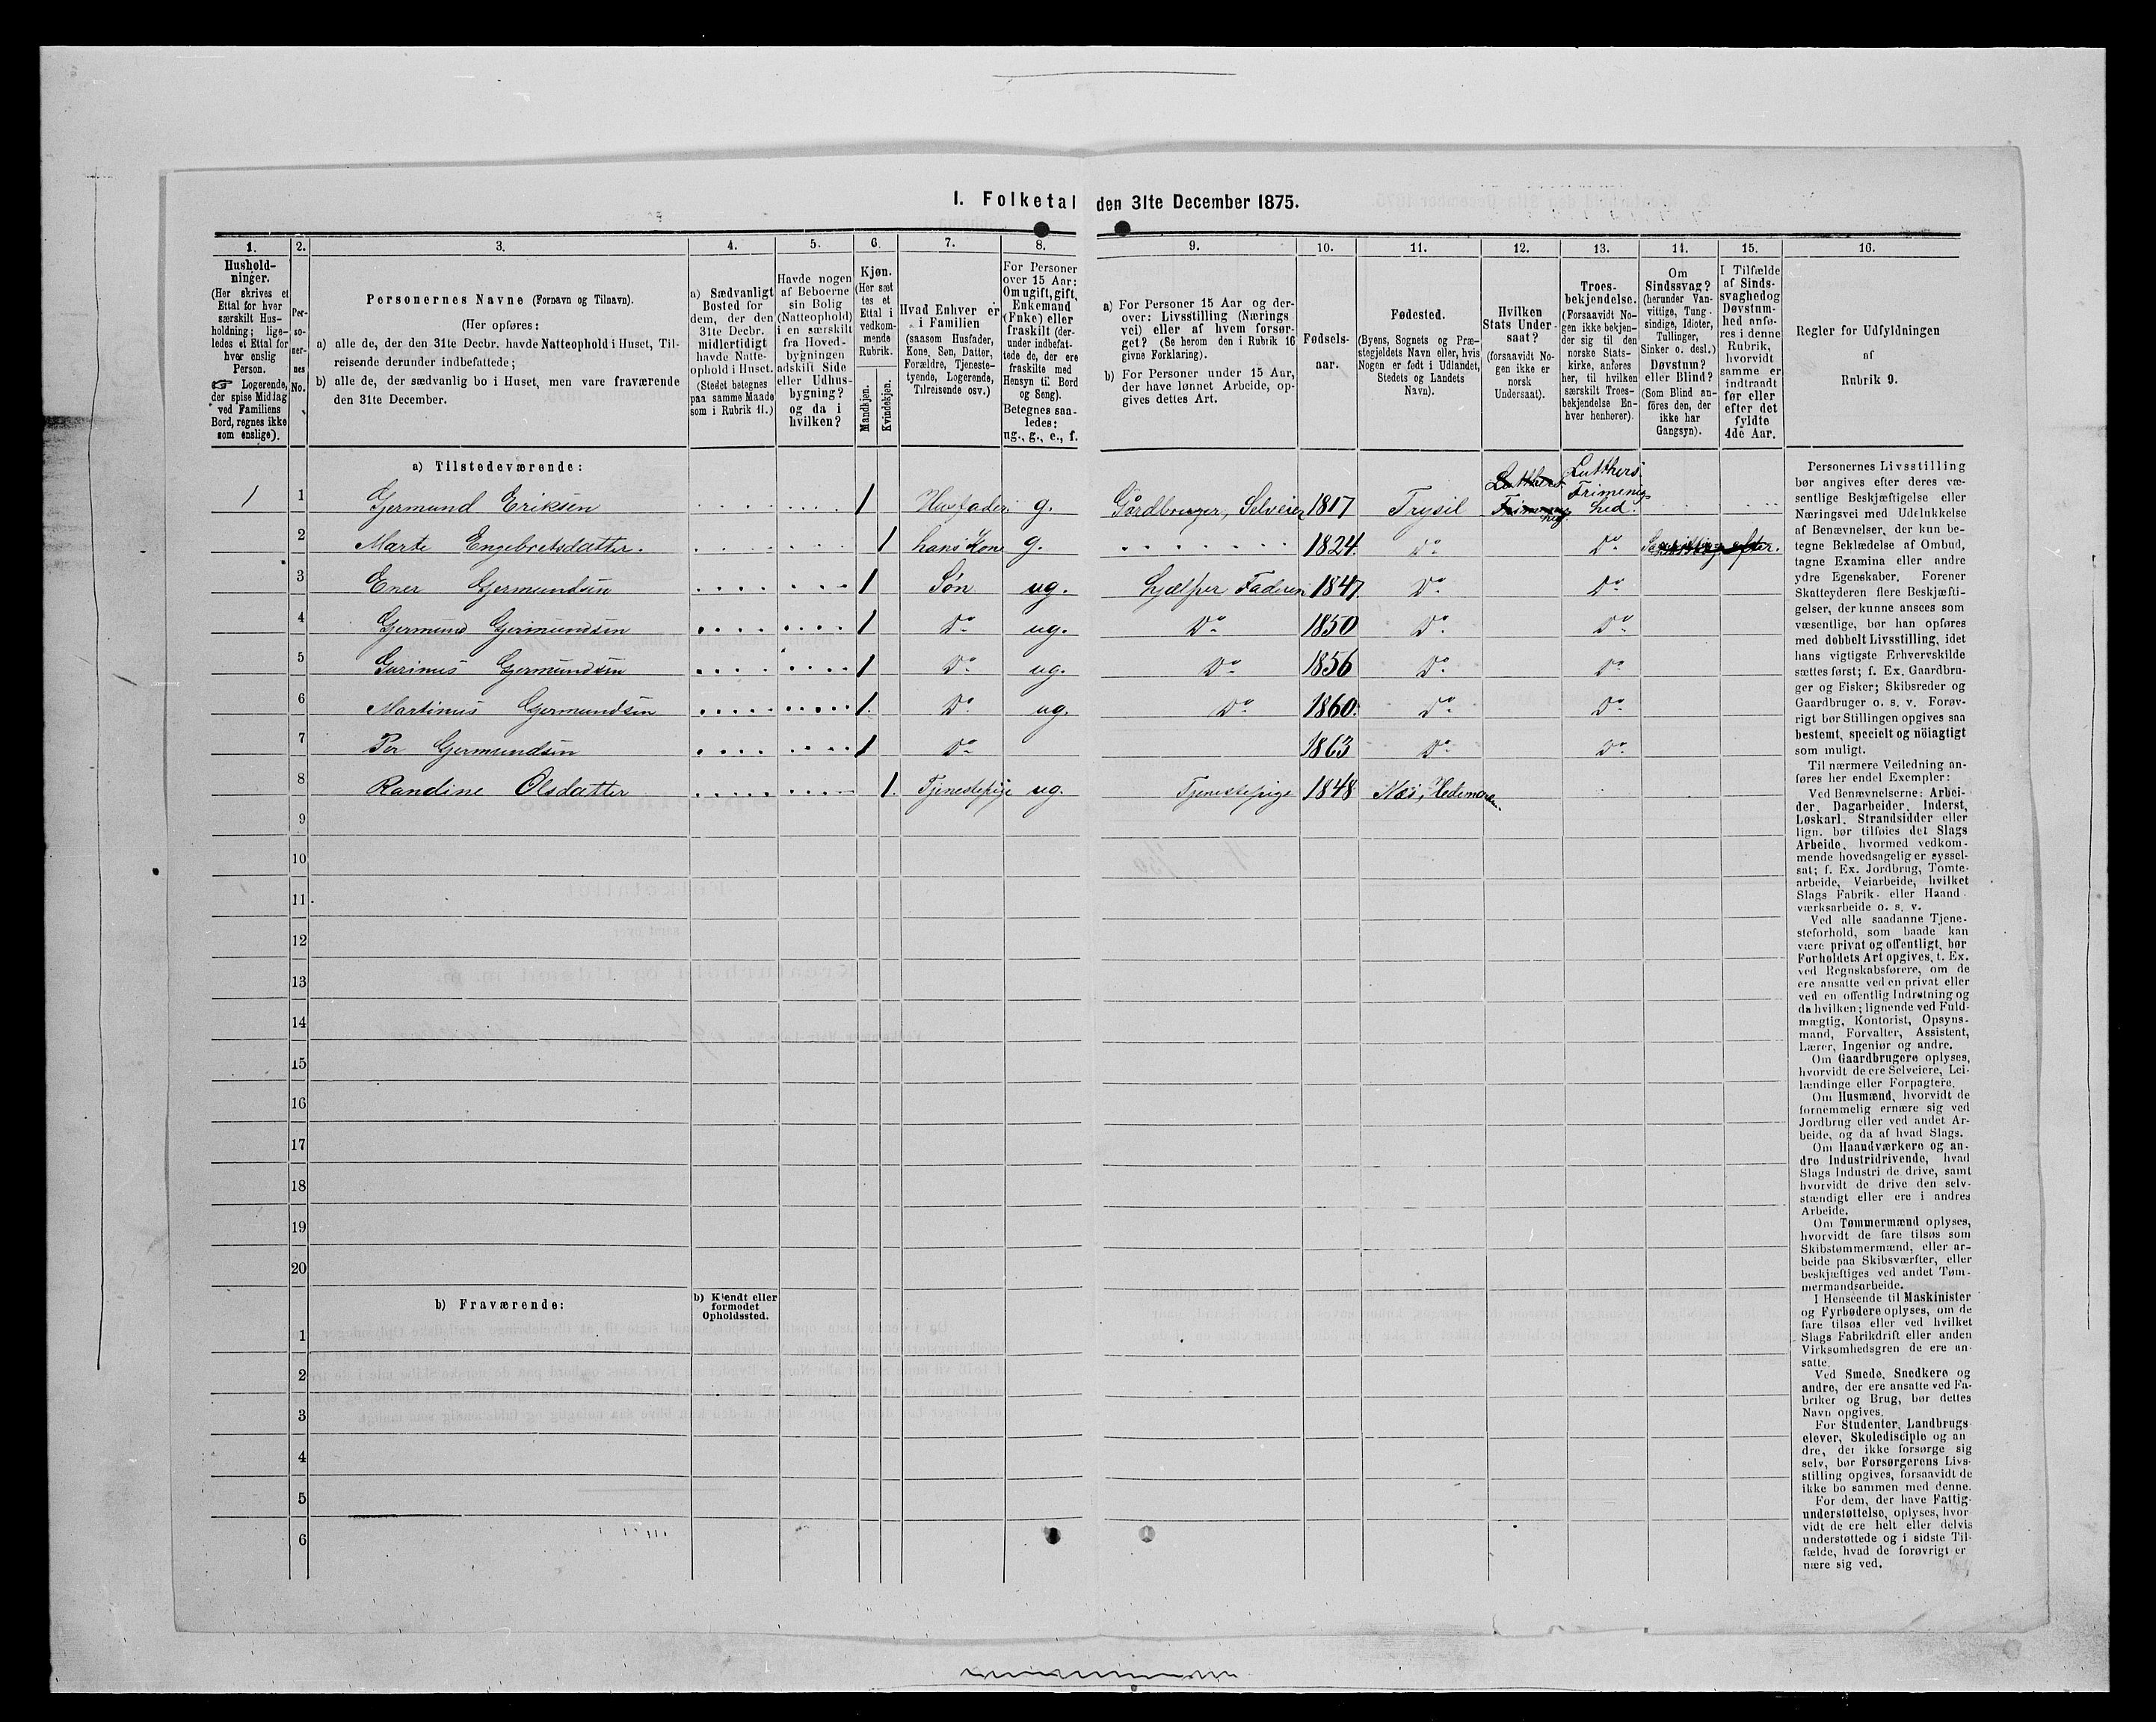 I. Folketal den 31te December 1875.
1. 2. 3. 4. 5. 6. 7. 8. 9. 10. 11. 12. 13. 14. 15. 16.
Hushold-
ninger.
(Her skrives et
Ettal for hver
særskilt Hus-
holdning; lige-
ledes et Ettal for
hver enslig
Person.
☞ Logerende,
der spise Middag
ved Familiens
Bord, regnes ikke
som enslige).
Per-
so-
ner-
nes
No.
Personernes Navne (Fornavn og Tilnavn).
(Her opføres:
a) alle de, der den 31te Decbr. havde Natteophold i Huset, Til-
reisende derunder indbefattede;
b) alle de, der sædvanlig bo i Huset, men vare fraværende
den 31te December.
a) Sædvanligt
Bosted for
dem, der den
31te Decbr.
midlertidigt
havde Natte-
ophold i Huset.
(Stedet betegnes
paa samme Maade
som i Rubrik 11.)
Havde nogen
af Beboerne
sin Bolig
(Natteophold)
i en særskilt
fra Hoved-
bygningen
adskilt Side
eller Udhus-
bygning?
og da i
hvilken?
Kjøn.
(Her sæt
tes et
Ettal i
vedkom-
mende
Rubrik.
Mandkjøn.
Kvindekjøn.
Hvad Enhver er
i Familien
(saasom Husfader,
Kone, Søn, Datter,
Forældre, Tjeneste-
tyende, Logerende,
Tilreisende osv.)
For Personer
over 15 Aar:
Om ugift, gift,
Enkemand
(Enke) eller
fraskilt (der-
under indbefat-
tede de, der ere
fraskilte med
Hensyn til Bord
og Seng).
Betegnes saa-
ledes:
ug., g., e., f.
a) For Personer 15 Aar og der-
over: Livsstilling (Nærings
vei) eller af hvem forsør-
get? (Se herom den i Rubrik 16
givne Forklaring).
b) For Personer under 15 Aar,
der have lønnet Arbeide, op-
gives dettes Art.
Fødsels-
aar.
Fødested.
(Byens, Sognets og Præ-
stegjeldets Navn eller, hvis
Nogen er født i Udlandet,
Stedets og Landets
Navn).
Hvilken
Stats Under-
saat?
(forsaavidt No-
gen ikke er
norsk
Undersaat).
Troes-
bekjendelse.
(Forsaavidt No-
gen ikke bekjen-
der sig til den
norske Stats-
kirke, anføres
her, til hvilken
særskilt Troes-
bekjendelse En-
hver henhører).
Om
Sindssvag?
(herunder Van-
vittige, Tung-
sindige, Idioter,
Tullinger,
Sinker o. desl.)
Døvstum?
eller Blind?
(Som Blind an-
føres den, der
ikke har
Gangsyn).
I Tilfælde
af Sinds-
svaghed og
Døvstum-
hed anfø-
res i denne
Rubrik,
hvorvidt
samme er
indtraadt
før eller
efter det
fyldte
4de Aar.
Regler for Udfyldningen
af
Rubrik 9.
a) Tilstedeværende:
1 1 Gjermund Eriksen 1 Husfader g. Gårdbruger, Selveier 1817 Trysil Luthers Frimenighed Luthers Frimenig-hed.
2 Marte Engebretsdatter. 1 hans Kone g. 1824. Do Do efter.
3 Ener Gjermundsen 1 Søn ug. hjælper Faderen 1847 Do Do
4 Gjermund Gjermundsen 1 Do ug. Do 1850 Do Do
5 Gurinus Gjermundsen 1 Do ug. Do 1856 Do Do
6 Martinus Gjermundsen 1. Do ug. Do 1860. Do Do
7 Per Gjermundsen 1 Do 1863 Do Do
8 Randine Olsdatter 1. Tjenestepige ug. Tjenestepige 1848 Næs, Hedemarken.
9
10
11
12
13
14
15
16
17
18
19
20
b) Fraværende:
b) Kjendt eller
formodet
Opholdssted.
1
2
3
4
5
6
Personernes Livsstilling
bør angives efter deres væ-
sentlige Beskjæftigelse eller
Næringsvei med Udelukkelse
af Benævnelser, der kun be-
tegne Beklædelse af Ombud,
tagne Examina eller andre
ydre Egenskaber. Forener
Skatteyderen flere Beskjæfti-
gelser, der kunne ansees som
væsentlige, bør han opføres
med dobbelt Livsstilling, idet
hans vigtigste Erhvervskilde
sættes først; f. Ex. Gaardbru-
ger og Fisker; Skibsreder og
Gaardbruger o. s. v. Forøv-
rigt bør Stillingen opgives saa
bestemt, specielt og nöiagtigt
som muligt.
Til nærmere Veiledning an-
føres her endel Exempler:
Ved Benævnelserne: Arbei-
der, Dagarbeider, Inderst,
Løskarl, Strandsidder eller
lign. bør tilføies det Slags
Arbeide, hvormed vedkom-
mende hovedsagelig er syssel-
sat; f. Ex. Jordbrug, Tomte-
arbeide, Veiarbeide, hvilket
Slags Fabrik- eller Haand-
værksarbeide o. s. v.
Ved alle saadanne Tjene-
steforhold, som baade kan
være privat og offentligt, bør
Forholdets Art opgives, t. Ex.
ved Regnskabsførere, om de
ere ansatte ved en privat eller
ved en offentlig Indretning og
da hvilken; lignende ved Fuld-
mægtig, Kontorist, Opsyns-
mand, Forvalter, Assistent,
Lærer, Ingeniør og andre.
Om Gaardbrugere oplyses,
hvorvidt de ere Selveiere, Lei-
lændinge eller Forpagtere.
Om Husmænd, hvorvidt de
fornemmelig ernære sig ved
Jordbrug eller ved andet Ar-
beide, og da af hvad Slags.
Om Haandværkere og an-
dre Industridrivende, hvad
Slags Industri de drive, samt
hvorvidt de drive den selv-
stændigt eller ere i andres
Arbeide.
Om Tømmermænd oplyses,
hvorvidt de fare tilsøs som
Skibstømmermænd, eller ar-
beide paa Skibsværfter, eller
beskjæftiges ved andet Tøm-
mermandsarbeide.
I Henseende til Maskinister
og Fyrbødere oplyses, om de
fare tilsøs eller ved hvilket
Slags Fabrikdrift eller anden
Virksomhedsgren de ere an-
satte.
Ved Smede, Snedkere og
andre, der ere ansatte ved Fa-
briker og Brug, bør dettes
Navn opgives.
For Studenter, Landbrugs-
elever, Skoledisciple og an
dre, der ikke forsørge sig
selv, bør Forsørgerens Livs-
stilling opgives, forsaavidt de
ikke bo sammen med denne.
For dem, der have Fattig-
understøttelse, oplyses, hvor-
vidt de ere helt eller delvis
understøttede og i sidste Til-
fælde, hvad de forøvrigt er-
nære sig ved.